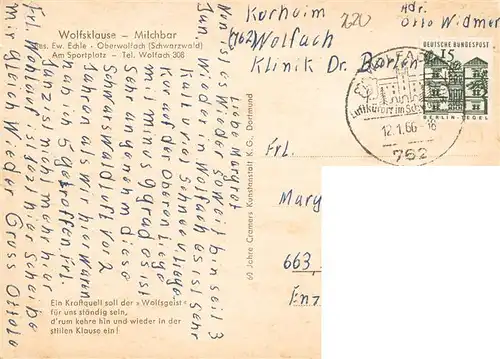 Wolfsklause – Milchbar
Bes. Ew. Echle · Oberwolfach (Schwarzwald)
Am Sportplatz – Tel. Wolfach 308
Liebe Margrot
Nun ist es wieder soweit bin seit 3
Jan. Wieder in Wolfach es ist sehr
Kalt u. alles Schnee u. liege
Kur auf der Oberen Liege
mit minus 9 grad es ist
Sehr angenehm diese
Schwarzwald luft. Vor 2
Jahren als Wir hier waren
mah ich 5 getroffen. Frl.
Junz ist nicht mehr hier
Frl. Wohlauf ist jezt hier Schreibe
mir gleich Wieder Gruss Otto
Ein Kraftquell soll der »Wolfsgeist«
für uns ständig sein,
d'rum kehre hin und wieder in der
stillen Klause ein!
60 Jahre Cramers Kunstanstalt K.G., Dortmund
Adr.
Otto Widmer
Kurheim
(762) Wolfach
Klinik Dr. Barten
220
DEUTSCHE BUNDESPOST
15
BERLIN-TEGEL
WOLFACH
Luftkurort im Schw
12.1.66-18
762
Frl.
Mary
663
Enz